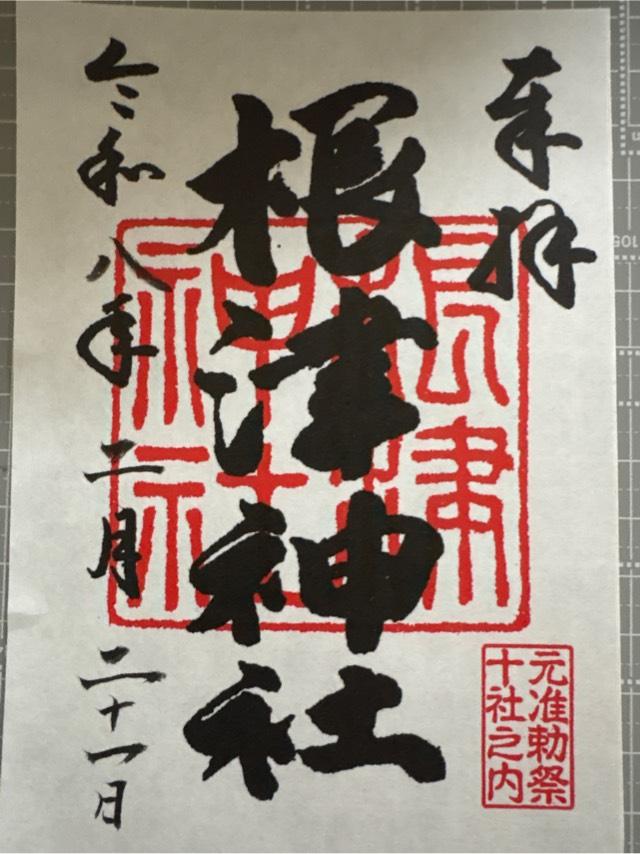 奉拝
根津神社
根津神社
元准勅祭
十社之内
令和八年二月二十一日